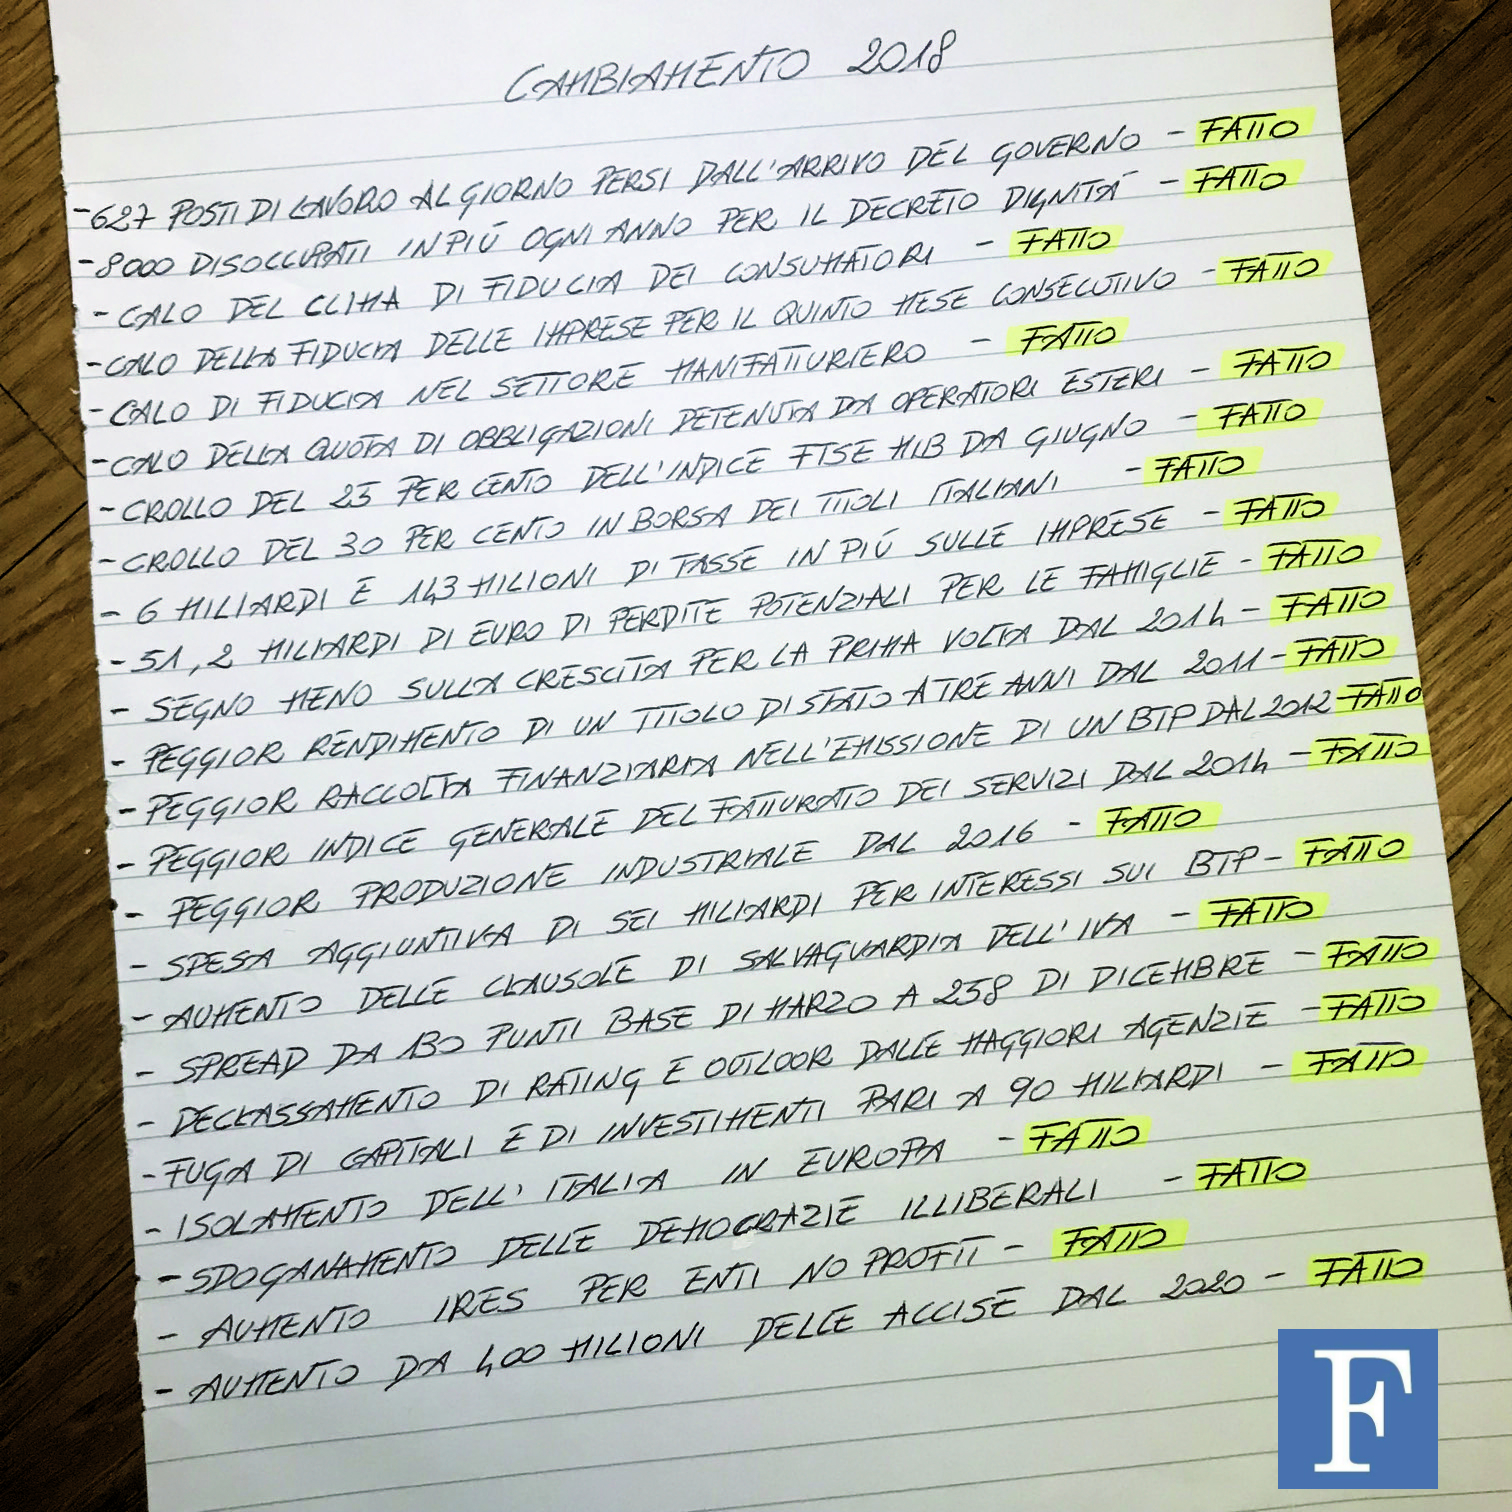 CAMBIAMENTO 2018
- 627 POSTI DI LAVORO AL GIORNO PERSI DALL'ARRIVO DEL GOVERNO - FATTO
- 8000 DISOCCUPATI IN PIÚ OGNI ANNO PER IL DECRETO DIGNITÁ - FATTO
- CALO DEL CLIMA DI FIDUCIA DEI CONSUMATORI - FATTO
- CALO DELLA FIDUCIA DELLE IMPRESE PER IL QUINTO MESE CONSECUTIVO - FATTO
- CALO DI FIDUCIA NEL SETTORE MANIFATTURIERO - FATTO
- CALO DELLA QUOTA DI OBBLIGAZIONI DETENUTA DA OPERATORI ESTERI - FATTO
- CROLLO DEL 25 PER CENTO DELL'INDICE FTSE MIB DA GIUGNO - FATTO
- CROLLO DEL 30 PER CENTO IN BORSA DEI TITOLI ITALIANI - FATTO
- 6 MILIARDI E 143 MILIONI DI TASSE IN PIÚ SULLE IMPRESE - FATTO
- 51,2 MILIARDI DI EURO DI PERDITE POTENZIALI PER LE FAMIGLIE - FATTO
- SEGNO MENO SULLA CRESCITA PER LA PRIMA VOLTA DAL 2014 - FATTO
- PEGGIOR RENDIMENTO DI UN TITOLO DI STATO A TRE ANNI DAL 2011 - FATTO
- PEGGIOR RACCOLTA FINANZIARIA NELL'EMISSIONE DI UN BTP DAL 2012 - FATTO
- PEGGIOR INDICE GENERALE DEL FATTURATO DEI SERVIZI DAL 2014 - FATTO
- PEGGIOR PRODUZIONE INDUSTRIALE DAL 2016 - FATTO
- SPESA AGGIUNTIVA DI SEI MILIARDI PER INTERESSI SUI BTP - FATTO
- AUMENTO DELLE CLAUSOLE DI SALVAGUARDIA DELL'IVA - FATTO
- SPREAD DA 130 PUNTI BASE DI MARZO A 258 DI DICEMBRE - FATTO
- DECLASSAMENTO DI RATING E OUTLOOR DALLE MAGGIORI AGENZIE - FATTO
- FUGA DI CAPITALI E DI INVESTIMENTI PARI A 90 MILIARDI - FATTO
- ISOLAMENTO DELL'ITALIA IN EUROPA - FATTO
- SDOGANAMENTO DELLE DEMOCRAZIE ILLIBERALI - FATTO
- AUMENTO IRES PER ENTI NO PROFIT - FATTO
- AUMENTO DA 400 MILIONI DELLE ACCISE DAL 2020 - FATTO
F